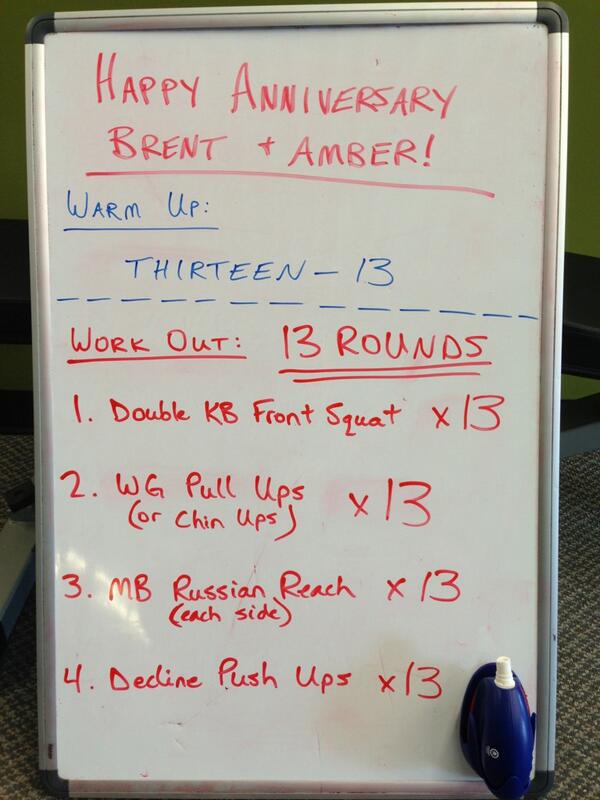 HAPPY ANNIVERSARY
BRENT + AMBER!
WARM UP:
THIRTEEN - 13
WORK OUT: 13 ROUNDS
1. Double KB Front Squat x 13
2. WG Pull Ups x 13
(or Chin Ups)
3. MB Russian Reach x 13
(each side)
4. Decline Push Ups x 13